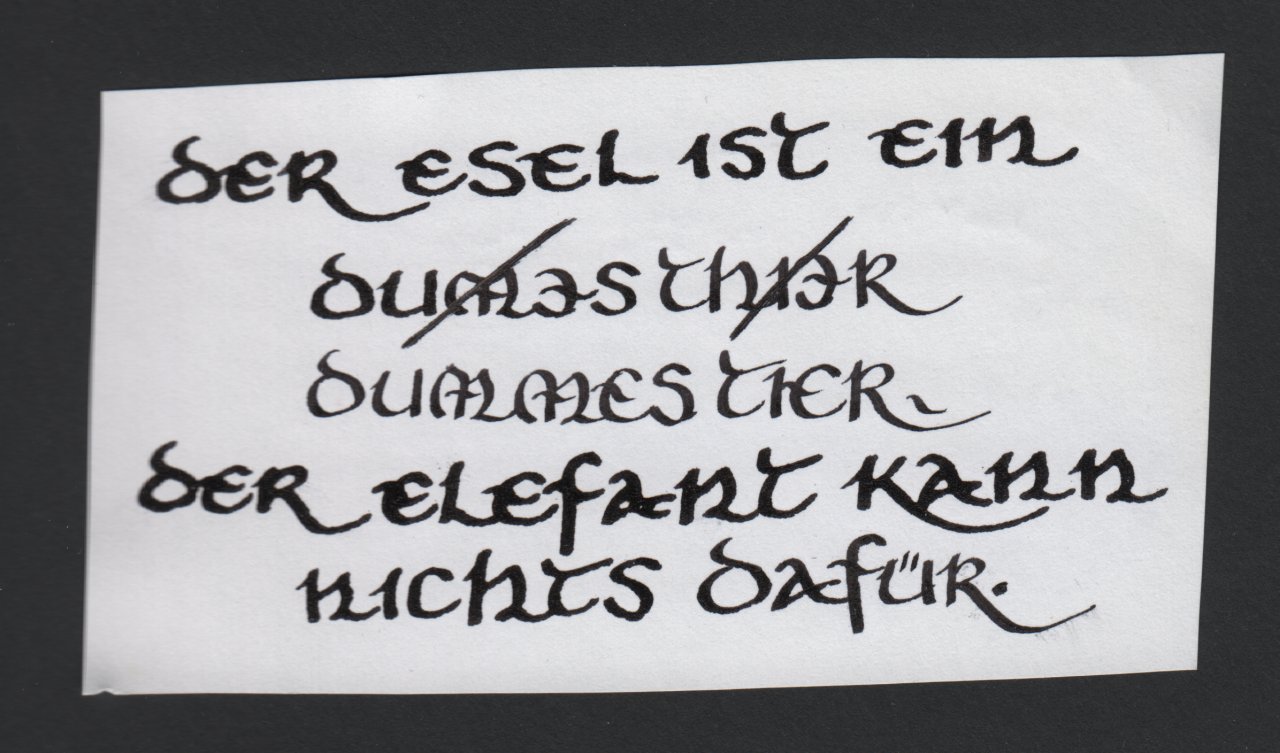 der esel ist ein
duməs thiər
dummes tier,
der elefant kann
nichts dafür.